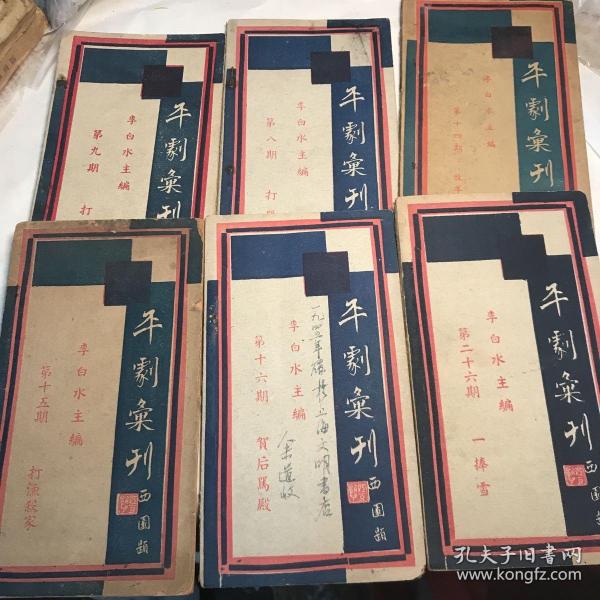 平劇彙刊
李白水主編
第九期
打
平劇彙刊
李白水主編
第八期
打
平劇彙刊
李白水主編
第十四期
平劇彙刊
西園題
李白水主編
第十五期
打漁殺家
平劇彙刊
西園題
李白水主編
第十六期
賀后罵殿
上海文明書店
平劇彙刊
西園題
李白水主編
第二十六期
一捧雪
孔夫子旧书网
www.kongfz.com